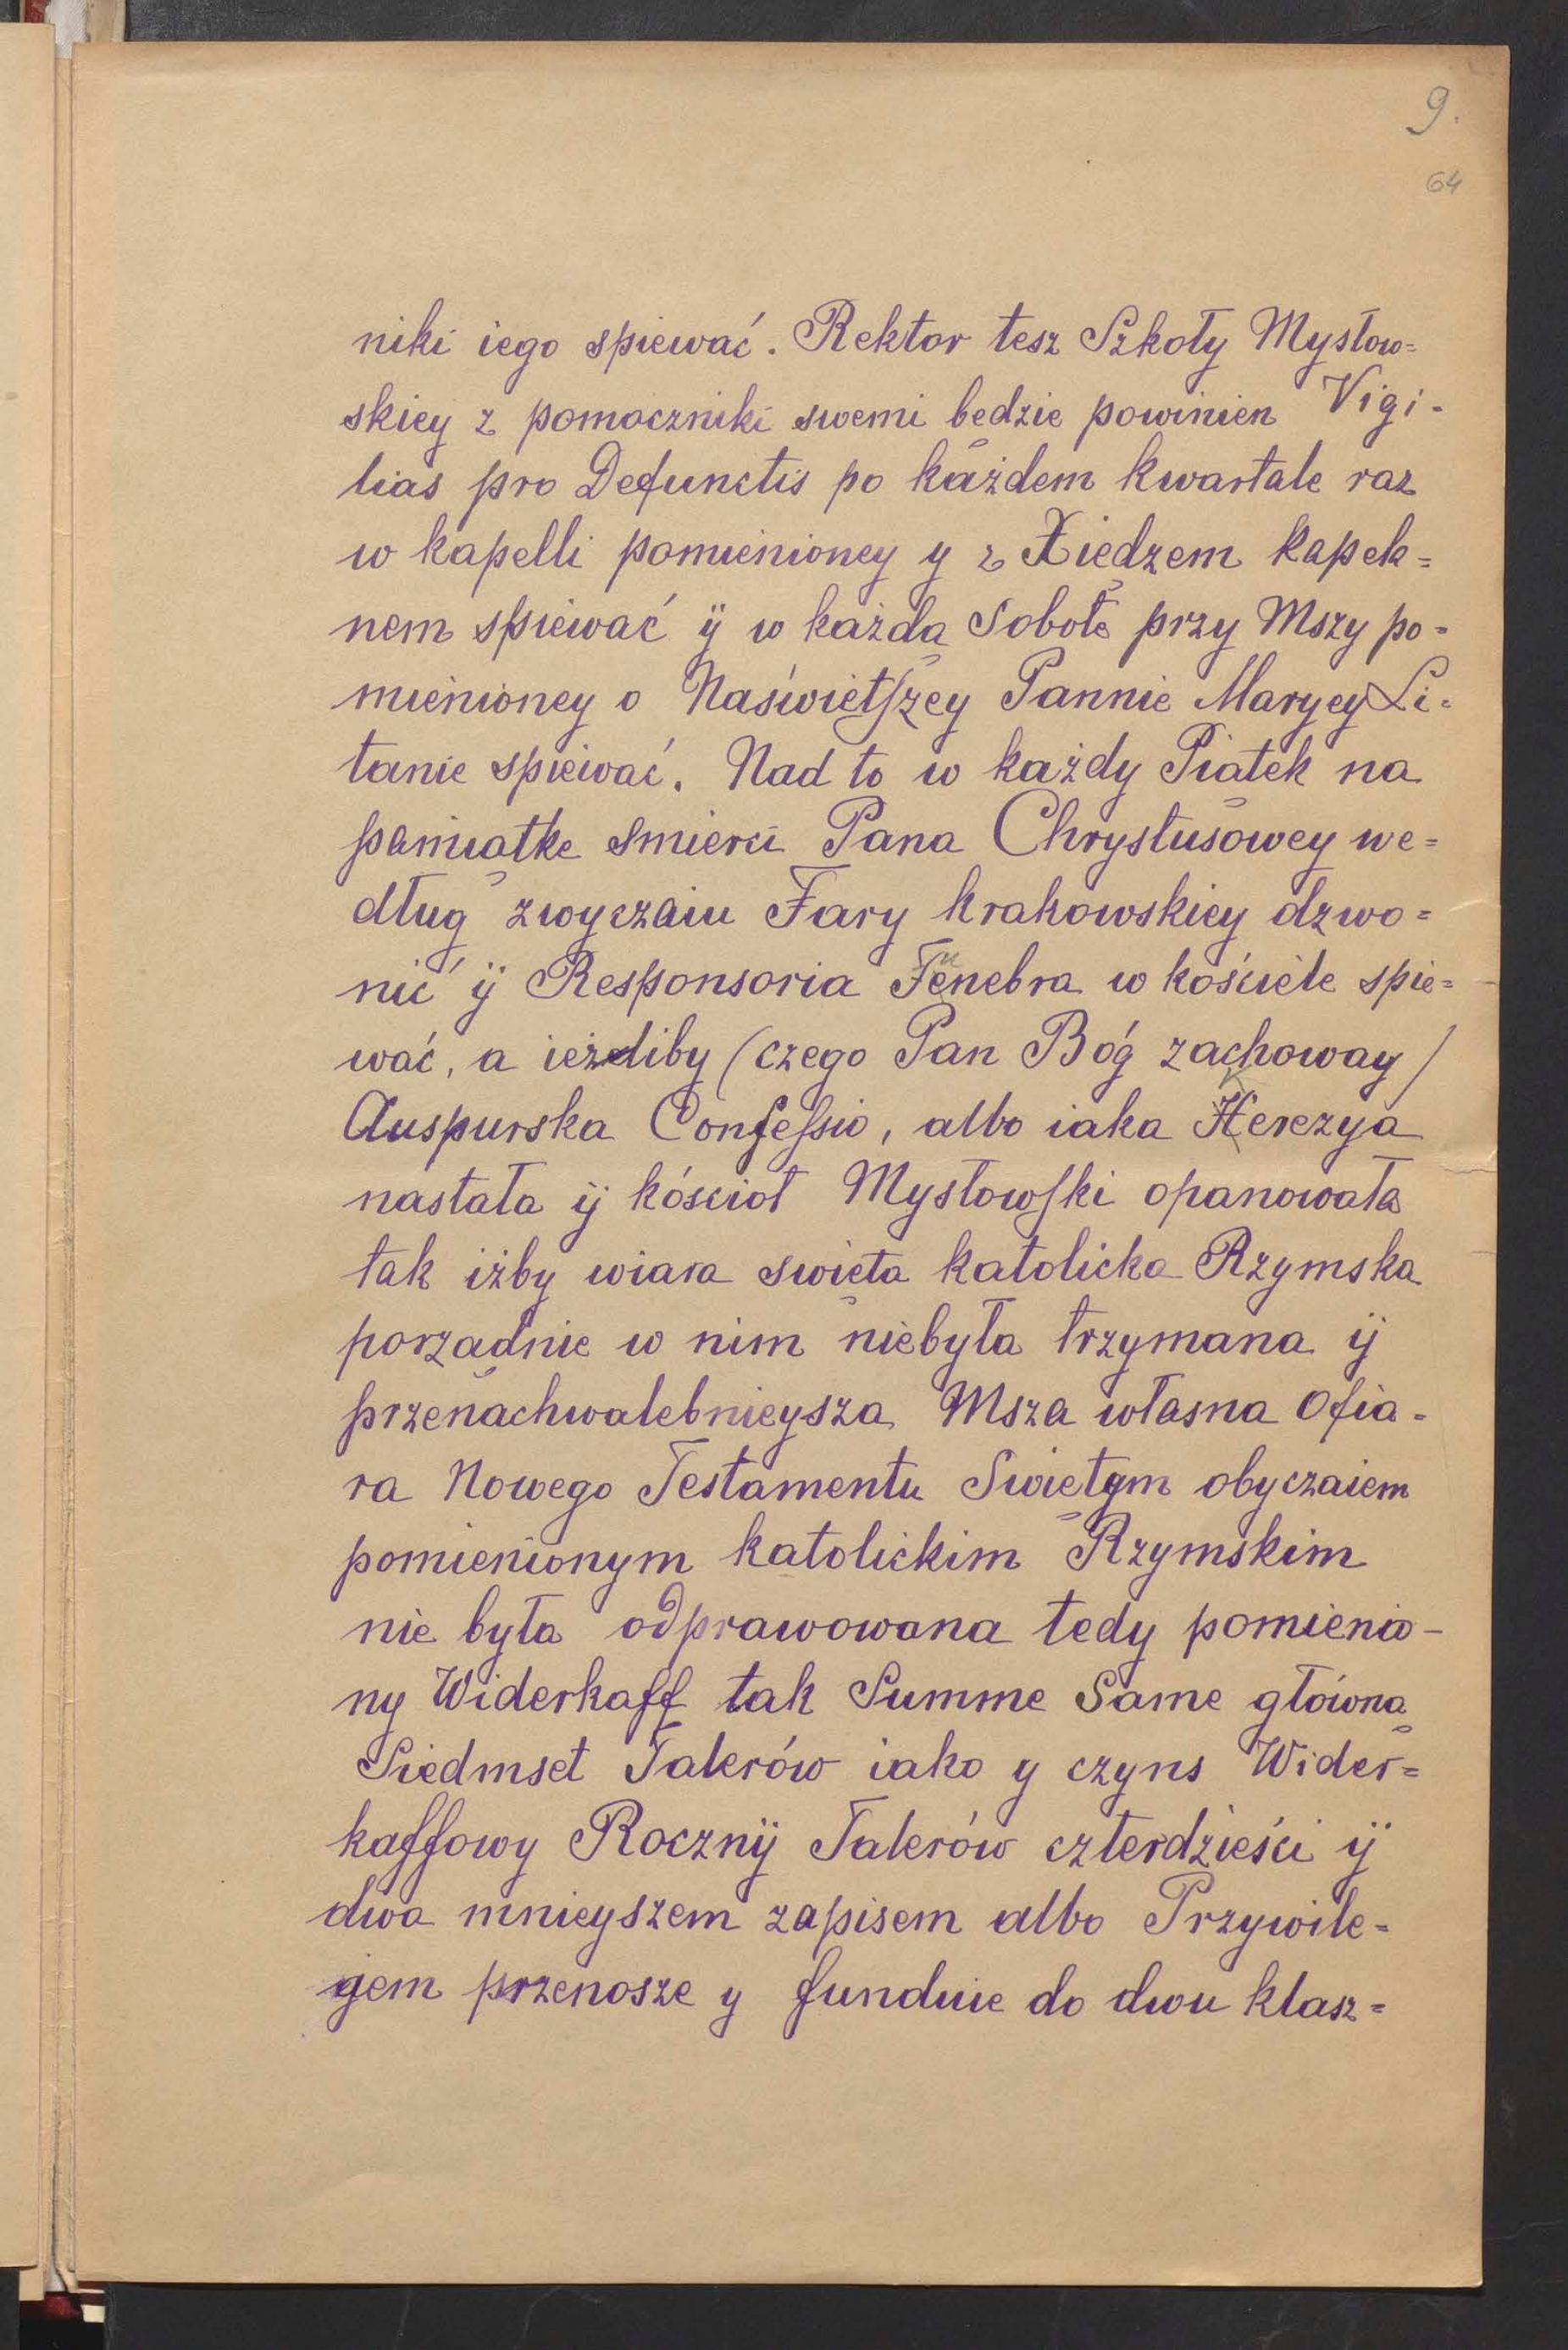 9.
64
niki iego spiewać. Rektor tesz Szkoły Mysłow=
skiey z pomoczniki swemi będzie powinien Vigi-
lias pro Defunctis po każdem kwartale raz
w kapelli pomienioney y z Xiedzem kapek=
nem spiewać ÿ w każda Sobotę przy Mszy po=
mienioney o Naświętſzey Pannie Maryey Li=
tanie spiewać. Nad to w każdy Piątek na
pamiątke smierci Pana Chrystusowey we=
dług zwyczaiu Fary krakowskiey dzwo=
nić ÿ Responsoria Tenebra w kościele spie=
wać, a ieżeliby (czego Pan Bóg zachoway/
Auspurska Confeſsio, albo iaka Herezya
nastała ÿ kósciot Mysłowſki opanowała
tak iżby wiara swięta katolicka Rzymska
porządnie w nim niebyła trzymana ÿ
przenachwalebnieysza Msza własna Ofia=
ra Nowego Testamentu Swiętym obyczaiem
pomienionym katolickim Rzymskim
nie była odprawowana tedy pomienio-
ny Widerkaff tak Summe Same główną
Siedmset Talerów iako y czyns Wider=
kaffowy Rocznÿ Talerów czterdzieści ÿ
dwa mnieyszem zapisem albo Przywile=
gjem przenosze y funduie do dwu klasz=